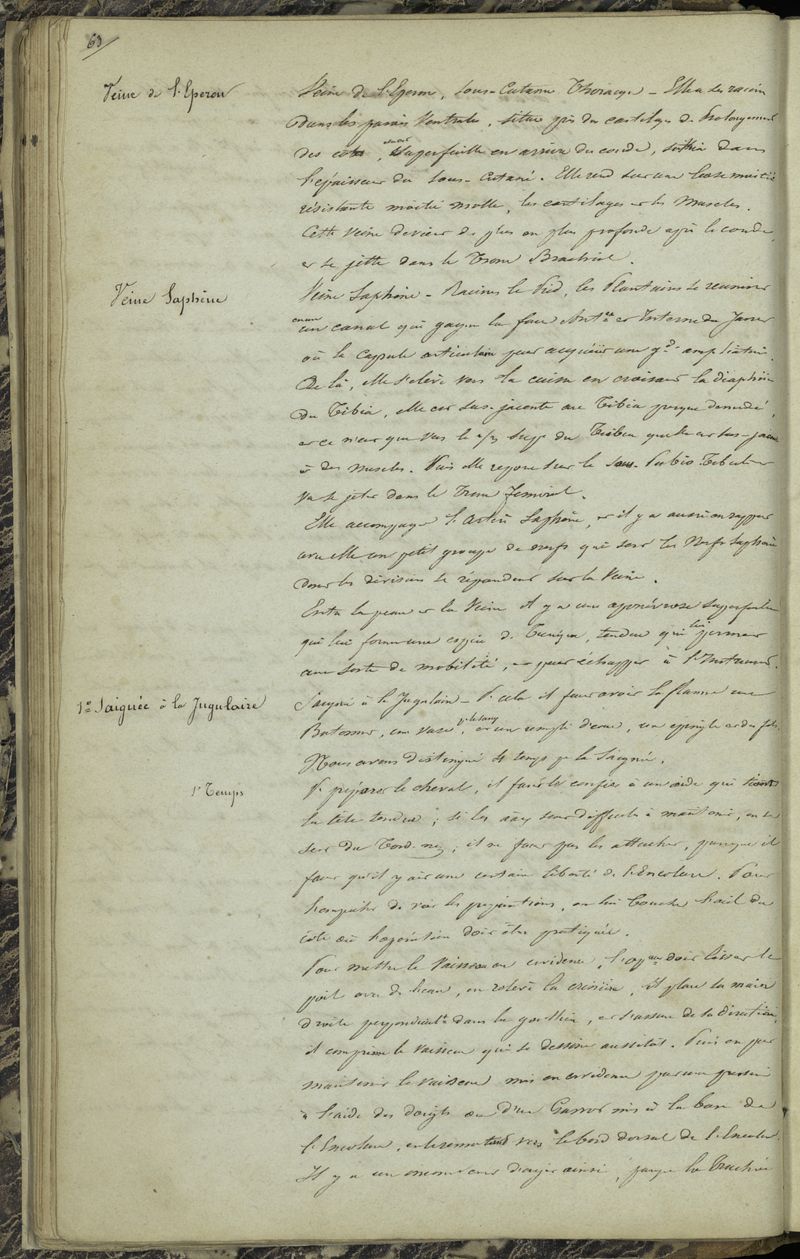 63/
Veine de l'Eperon
Veine de l'Eperon, Sous-Cutanée Thoracique - Elle a des racines
dans les parois Ventrales, située près des cartilages de Prolongement
des côtes, Superficielle en arrière du coude, située dans
l'épaisseur du Sous-Cutané. Elle sur une base moitié
résistante moitié molle, les cartilages et les Muscles.
Cette Veine devient de plus en plus profonde après le coude,
et se jette dans le Tronc Brachial.
Veine Saphène
Veine Saphène - Racines le Pied, les Plantaires se réunissent
en un canal qui gagne la face Antre et Interne du Jarret
où la Capsule articulaire peut acquérir une gde ampliation.
De là, elle s'élève vers la cuisse en croisant la diaphyse
du Tibia, elle est sus-jacente au Tibia presque dénudé,
et ce n'est que vers le Supr du Tibia qu'elle est sus-jacente
à des Muscles. Puis elle le Sous-Pubio-Tibial et
va se jeter dans le Tronc fémoral.
Elle accompagne l'artère Saphène, et il y a aussi en rapport
avec elle un petit groupe de nerfs qui sont les Nerfs Saphènes
dont les divisions se répandent sur la Veine.
Entre la peau et la Veine il y a une aponévrose superficielle
qui lui forme une espèce de Tunique, tendue qui lui permet
une sorte de mobilité, et peut échapper à l'Instrument.
1° Saignée à la Jugulaire
Saignée à la Jugulaire - Pr cela il faut avoir la flamme un
Batonnet, un vase pr le sang, et un rempli d'eau, une épingle et du fil.
Nous avons distingué 4 temps pr la Saignée.
1r Temps
Pr préparer le cheval, il faut le confier à un aide qui tient
la tête tendue; si les sont difficiles à maintenir, on se
sert du Tord-nez; il ne faut pas les attacher, parcequ'il
faut qu'il y ait une certaine liberté de l'Encolure. Pour
l'empêcher de voir les préparations, on lui bouche l'œil du
côté où l'opération doit être pratiquée.
Pour mettre le Vaisseau en évidence, l'opeur doit lisser le
poil avec de l'eau, on relève la crinière, il place la main
droite perpendicult dans la gouttière, et s'assure de la direction,
il comprime le vaisseau qui se dessine aussitôt. Puis on peut
maintenir le vaisseau mis en évidence par une pression
à l'aide des doigts ou d'un Garrot mis à la base de
l'Encolure, en le remontant vers le bord dorsal de l'Encolure.
Il y a un inconvénient d'agir ainsi, parce que la Trachée